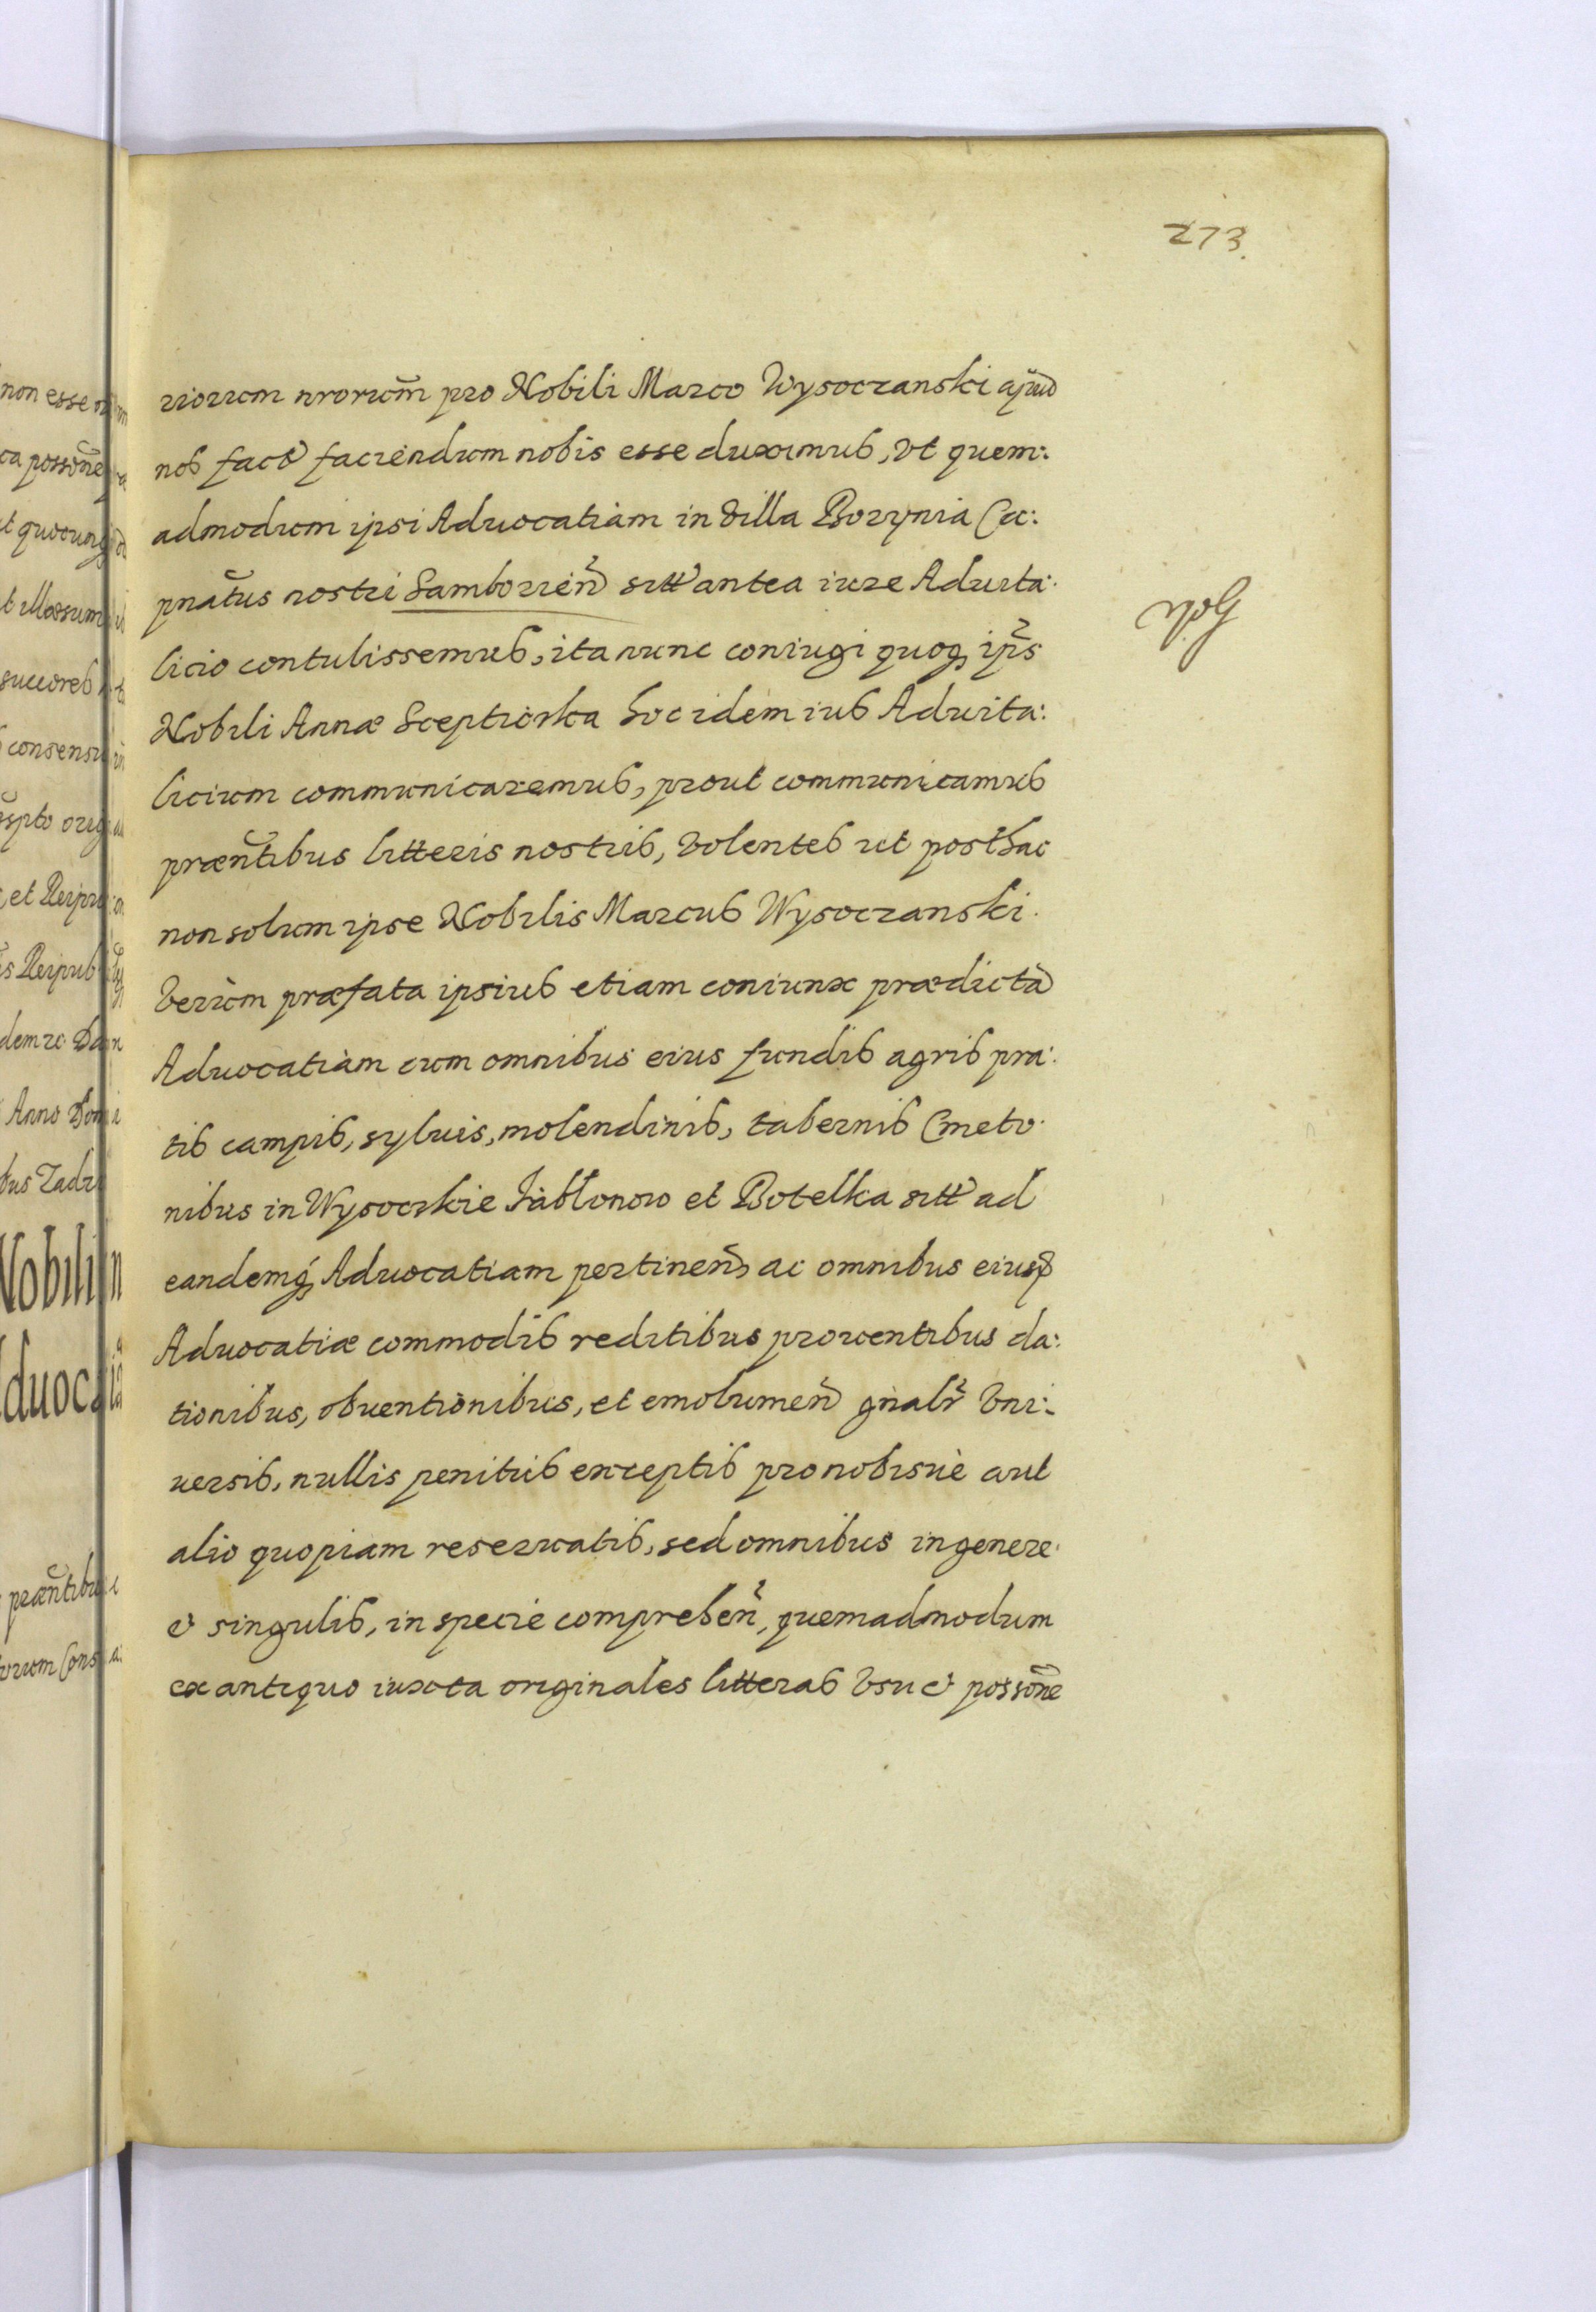 273.
riorum nrorum̃ pro Nobili Marco Wysoczanski apud
nos fact faciendum nobis esse duximus, Vt quem:
admodum ipsi Aduocatiam in Villa Borynia Ca:
pnatus nostri Samborien sitt antea iure Aduita:
licio contulissemus, ita nunc coniugi quoq ips
Nobili Annæ Scepticrka hoc idem ius Aduita:
licium communicaremus, prout communicamus
præntibus litteris nostris, Volentes ut posthac
non solum ipse Nobilis Marcus Wysoczanski.
Verùm præfata ipsius etiam coniunx prædictã
Aduocatiam cum omnibus eius fundis agris pra:
tis campis, syluis, molendinis, tabernis Cmeto
nibus in Wysockie Jabłonow et Botelka sitt ad
eandemq Aduocatiam pertinen, ac omnibus eiusd
Aduocatiæ commodis reditibus prouentibus da:
tionibus, obuentionibus, et emolumen gnalr Vni:
uersis, nullis penitus exceptis pro nobisuè aut
alio quopiam reseruatis, sed omnibus in genere
& singulis, in specie comprehen, quemadmodum
ex antiquo iuxta originales litteras Vsu & possone